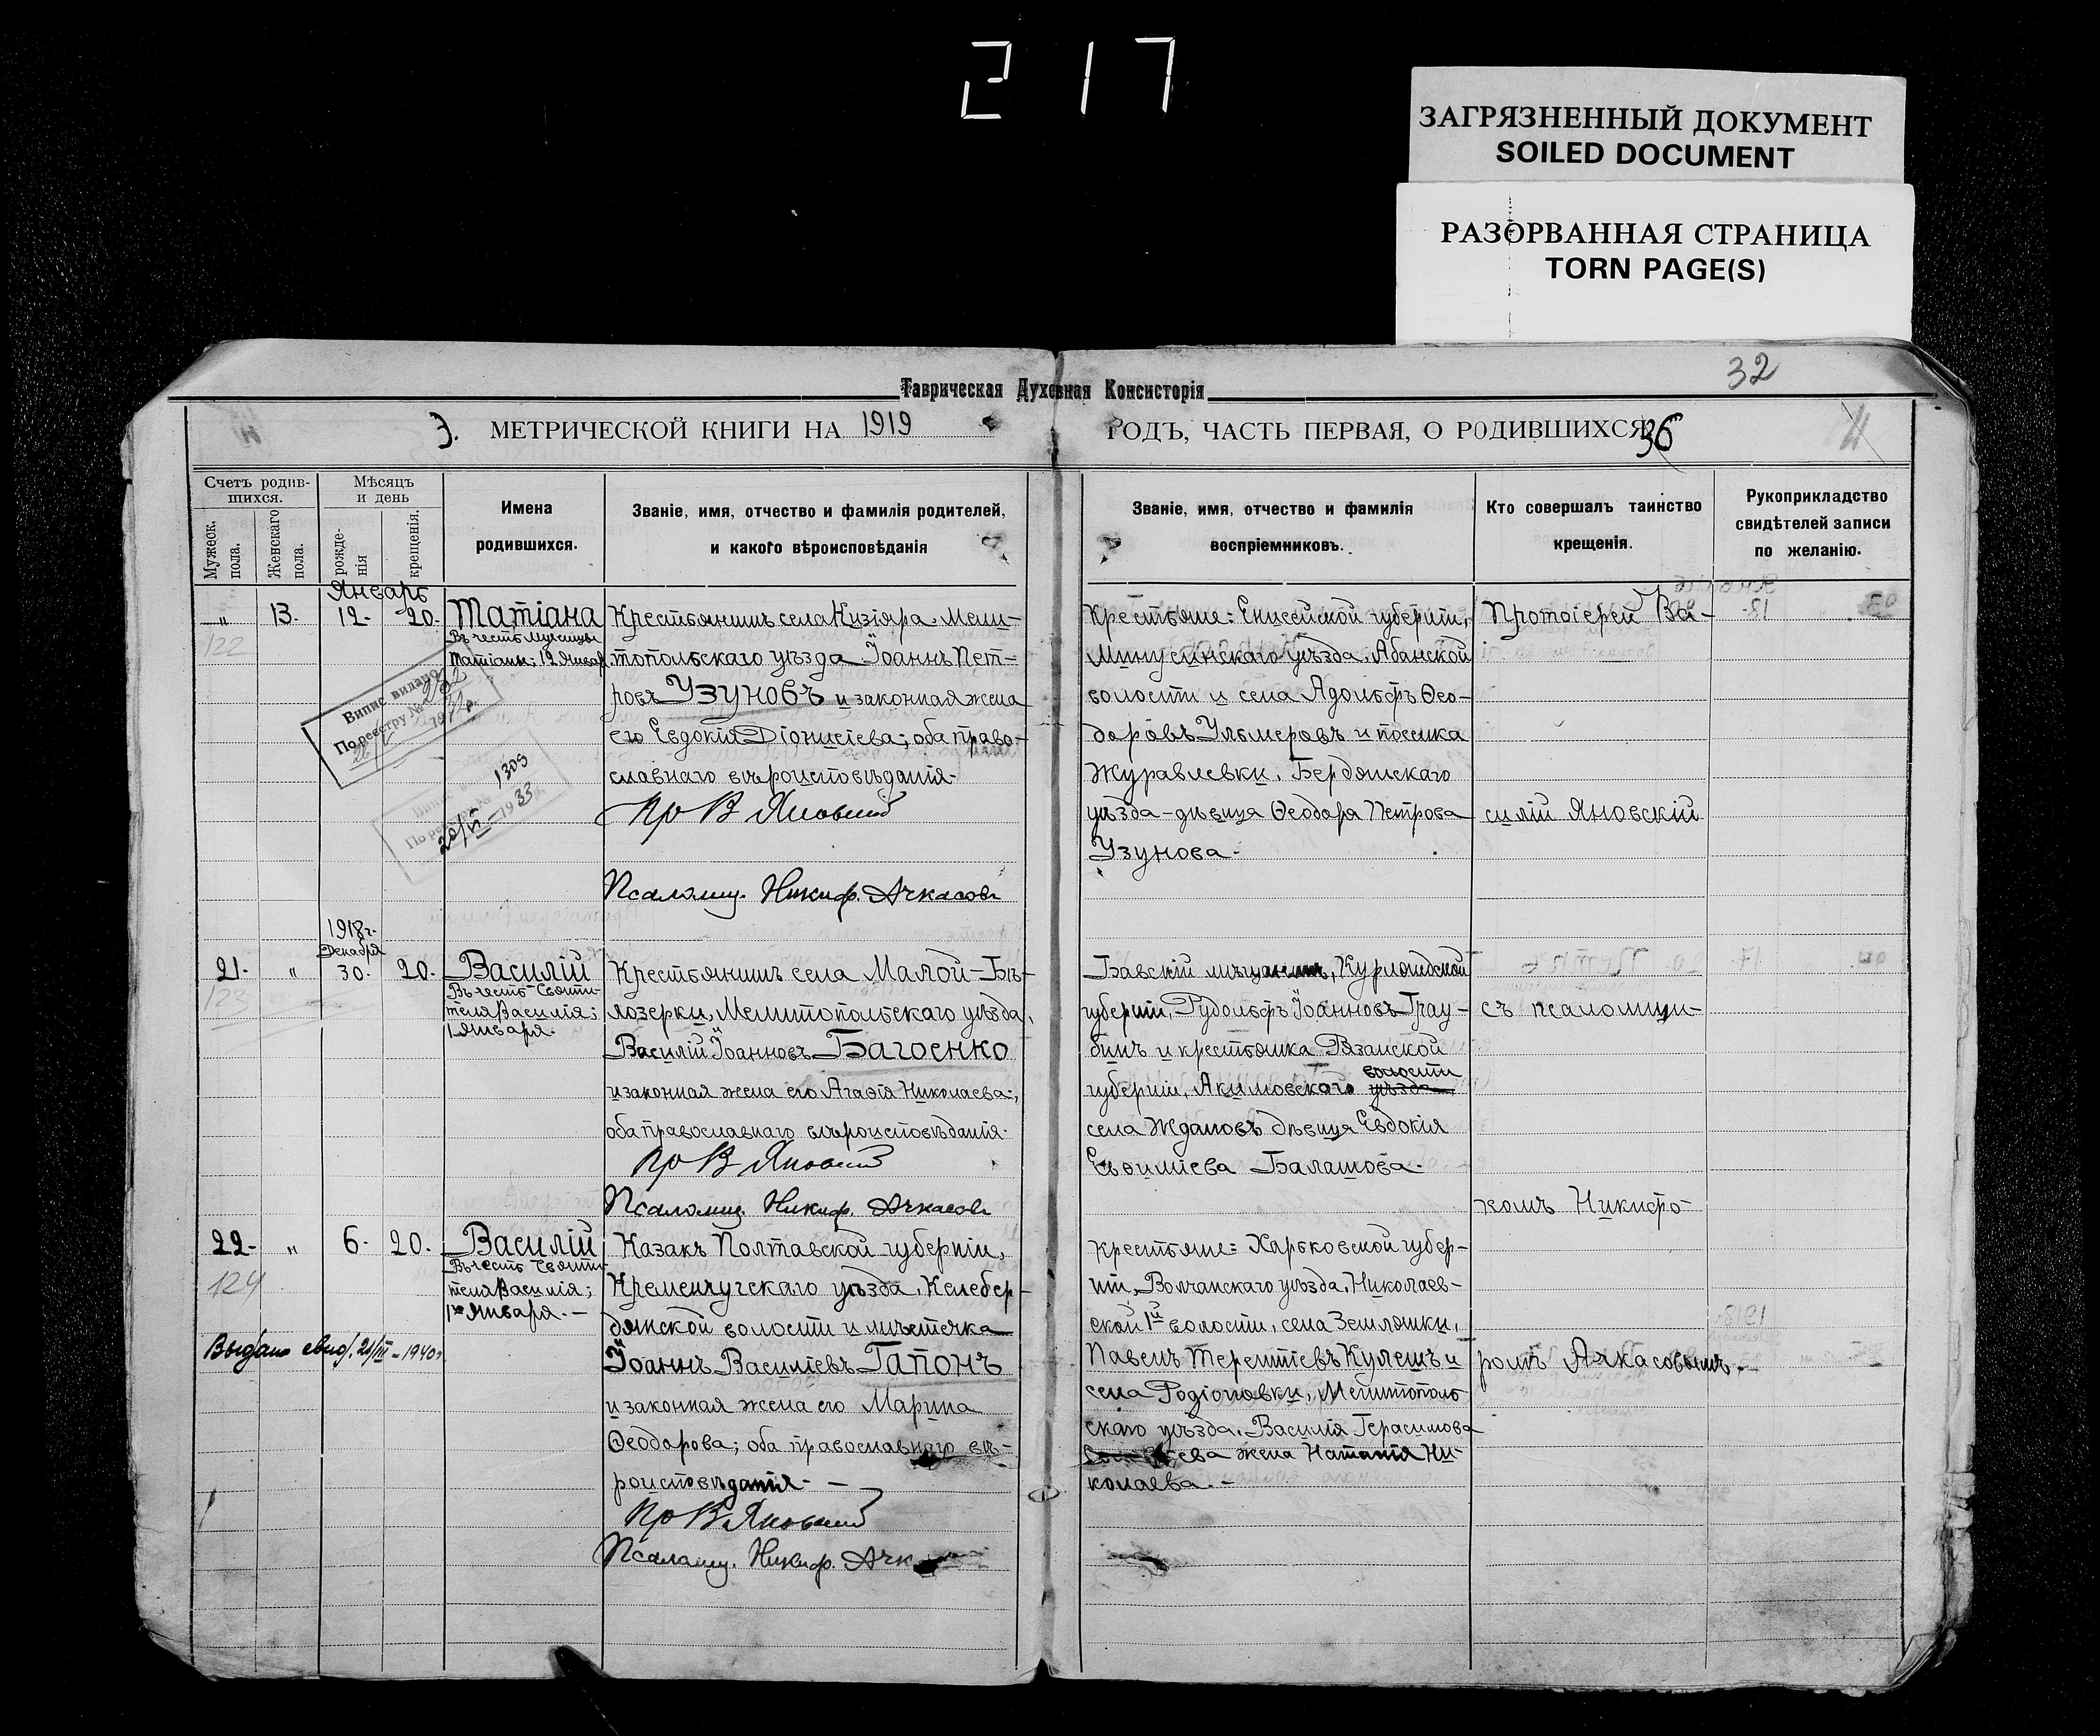 217
ЗАГРЯЗНЕННЫЙ ДОКУМЕНТ
SOILED DOCUMENT
РАЗОРВАННАЯ СТРАНИЦА
TORN PAGE(S)
32
Таврическая Духовная Консисторія
З. МЕТРИЧЕСКОЙ КНИГИ НА 1919
ГОДЪ, ЧАСТЬ ПЕРВАЯ, О РОДИВШИХСЯ 36
Счетъ родив-
шихся.
Мужеск.
пола.
Женскаго
пола.
Мѣсяцъ
и день
рожде-
нія
крещенія.
Имена
родившихся.
Званіе, имя, отчество и фамилія родителей,
и какого вѣроисповѣданія
Званіе, имя, отчество и фамилія
воспріемниковъ.
Кто совершалъ таинство
крещенія.
Рукоприкладство
свидѣтелей записи
по желанію.
Январь
" 13. 12. 20. Татіана
Въ честь мученицы
Татіаны; 12 Январ
122
Випис видано
По реєстру № 282
1309
20/VI - 1933
Крестьянинъ села Кизіяра Мели-
топольскаго уѣзда Іоаннъ Пет-
ровъ Узуновъ и законная жена
его Евдокія Діонисіева; оба право-
славнаго вѣроисповѣданія.
Пр В Яновскій
Псаломщ. Никиф. Ачкасовъ
Крестьяне: Енисейской губерніи,
Минусинскаго уѣзда, Абанской
волости и села Адольфъ Ѳео-
доровъ Ульмеровъ и поселка
Журавлевки, Бердянскаго
уѣзда - дѣвица Ѳеодора Петрова
Узунова.
Протоіерей Ва-
силій Яновскій
1918 г.
Декабря
21. " 30. 20. Василій
Въ честь Святи-
теля Василія;
1 Января.
123
Крестьянинъ села Малой-Бѣ-
лозерки, Мелитопольскаго уѣзда,
Василій Іоанновъ Багоенко
и законная жена его Агаѳія Николаева;
оба православнаго вѣроисповѣданія.
Пр В Яновскій
Псаломщ. Никиф. Ачкасовъ
Бавскій мѣщанинъ, Курляндской
губерніи, Рудольфъ Іоанновъ Грау-
бинъ и крестьянка Рязанской
губерніи, Акимовскаго уѣзда волости
села Ждановъ дѣвица Евдокія
Евѳиміева Балашова.
съ псаломщи-
комъ Никифо-
22. " 6. 20. Василій
Въ честь Святи-
теля Василія;
1го Января.
124
Выдано свид. 21/III - 1940 г.
Казакъ Полтавской губерніи,
Кременчугскаго уѣзда, Келебер-
дянской волости и мѣстечка
Іоаннъ Василіевъ Гапонъ
и законная жена его Марина
Ѳеодорова; оба православнаго вѣ-
роисповѣданія.
Пр В Яновскій
Псаломщ. Никиф. Ачк
Крестьяне: Харьковской губер-
ніи, Волчанскаго уѣзда, Николаев-
ской 1й волости, села Землянки,
Павелъ Терентіевъ Кулешъ и
села Родіоновки, Мелитополь
скаго уѣзда, Василія Герасимова
жена Наталія Ни-
колаева.
ромъ Ачкасовымъ.